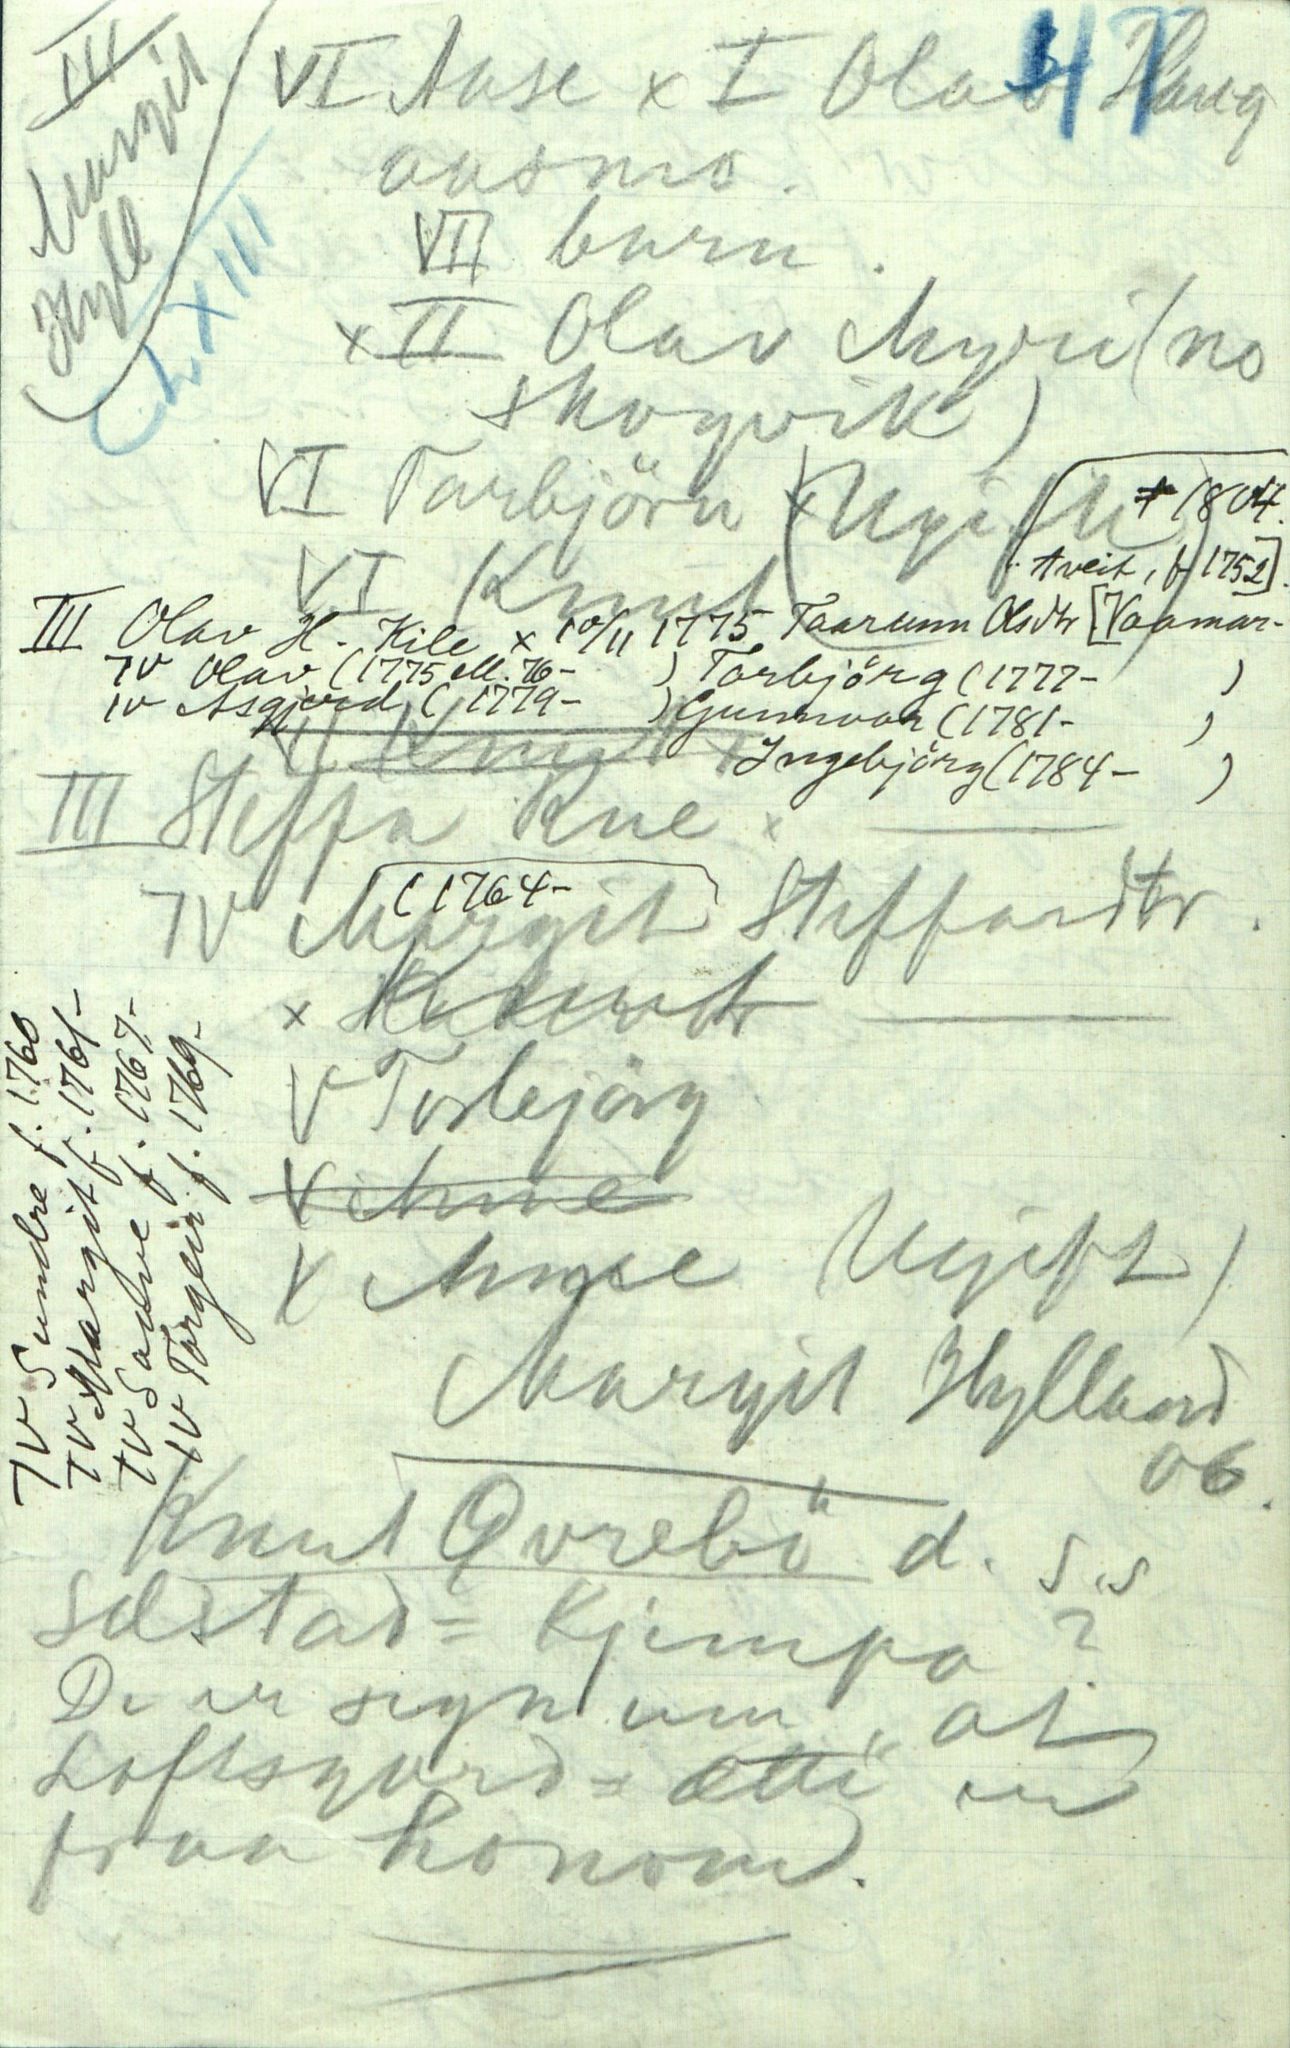 III
Margit
Hyll
L XIII
47
VI Aase x I Olav Haug
aasmo.
VII barn.
x II Olav Myri (no
Skogvik)
VI Tarbjörn x (Ugift)
VI Knut
+ 1804.
tveit, f 1752].
III Olav H. Kile x 10/11 1775 Taarunn Olsdtr [Vaamar-
IV Olav (1775 ell. 76- ) Torbjörg (1777- )
IV Asgjerd (1779- ) Gunnvor (1781- )
Ingebjörg (1784- )
VI Knut x
III Steffa Rue x
(1764-
IV Margit Steffandtr.
x
V Torbjörg
V Anne
V Anne (Ugift)
Margit Hylland
06.
IV Sundre f. 1760
IV Margit f. 1761-
IV Salve f. 1767-
IV Torgeir f. 1769-
Knut Qvrebö d. s.s
Sælstad = Kjempa ?
De er segn um, at
Loftsgard = ætti er
fraa honom.